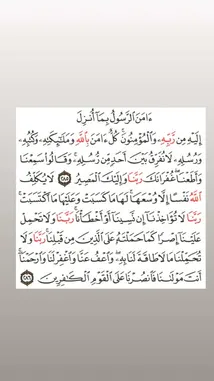 ءَامَنَ ٱلرَّسُولُ بِمَآ أُنزِلَ
إِلَيْهِ مِن رَّبِّهِۦ وَٱلْمُؤْمِنُونَ ۚ كُلٌّ ءَامَنَ بِٱللَّهِ وَمَلَـٰٓئِكَتِهِۦ وَكُتُبِهِۦ
وَرُسُلِهِۦ لَا نُفَرِّقُ بَيْنَ أَحَدٍ مِّن رُّسُلِهِۦ ۚ وَقَالُوا۟ سَمِعْنَا
وَأَطَعْنَا ۖ غُفْرَانَكَ رَبَّنَا وَإِلَيْكَ ٱلْمَصِيرُ ٢٨٥ لَا يُكَلِّفُ
ٱللَّهُ نَفْسًا إِلَّا وُسْعَهَا ۚ لَهَا مَا كَسَبَتْ وَعَلَيْهَا مَا ٱكْتَسَبَتْ ۗ
رَبَّنَا لَا تُؤَاخِذْنَآ إِن نَّسِينَآ أَوْ أَخْطَأْنَا ۚ رَبَّنَا وَلَا تَحْمِلْ
عَلَيْنَآ إِصْرًا كَمَا حَمَلْتَهُۥ عَلَى ٱلَّذِينَ مِن قَبْلِنَا ۚ رَبَّنَا وَلَا
تُحَمِّلْنَا مَا لَا طَاقَةَ لَنَا بِهِۦ ۖ وَٱعْفُ عَنَّا وَٱغْفِرْ لَنَا وَٱرْحَمْنَآ ۚ
أَنتَ مَوْلَىٰنَا فَٱنصُرْنَا عَلَى ٱلْقَوْمِ ٱلْكَـٰفِرِينَ ٢٨٦